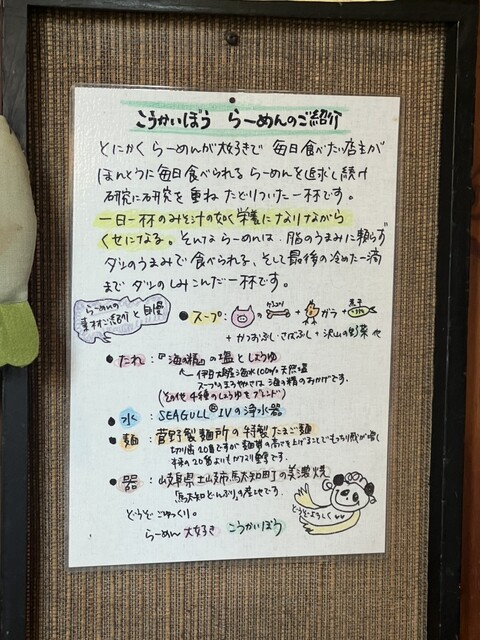 こうかいぼう らーめんのご紹介
とにかく らーめんが大好きで 毎日食べたい店主が
ほんとうに毎日食べられる らーめんを追求し続け
研究に研究を重ね たどりついた一杯です。
一日一杯のみそ汁の如く栄養になりながら
くせになる。そんな らーめんは、脂のうまみに頼らず
ダシのうまみで食べられる、そして最後の冷めた一滴
まで ダシのしみこんだ一杯です。
らーめんの
素材ご紹介と自慢
●スープ: の + ガラ + 煮干
+ かつおぶし・さばぶし + 沢山の野菜
●たれ:『海の精』の塩としょうゆ
伊豆大島産海水100%天然塩
スープのまろやかさは 海の精のおかげです。
4種のしょうゆをブレンド
●水: SEAGULL®IVの浄水器
●麺: 菅野製麺所の特製たまご麺
切り歯20番ですが 麺の高さを上げることでもっちり感が増し
20番よりも です。
●器: 岐阜県土岐市駄知町の美濃焼
「駄知どんぶり」の産地です。
どうぞ ごゆっくり。
らーめん 大好き こうかいぼう
どうぞよろしく